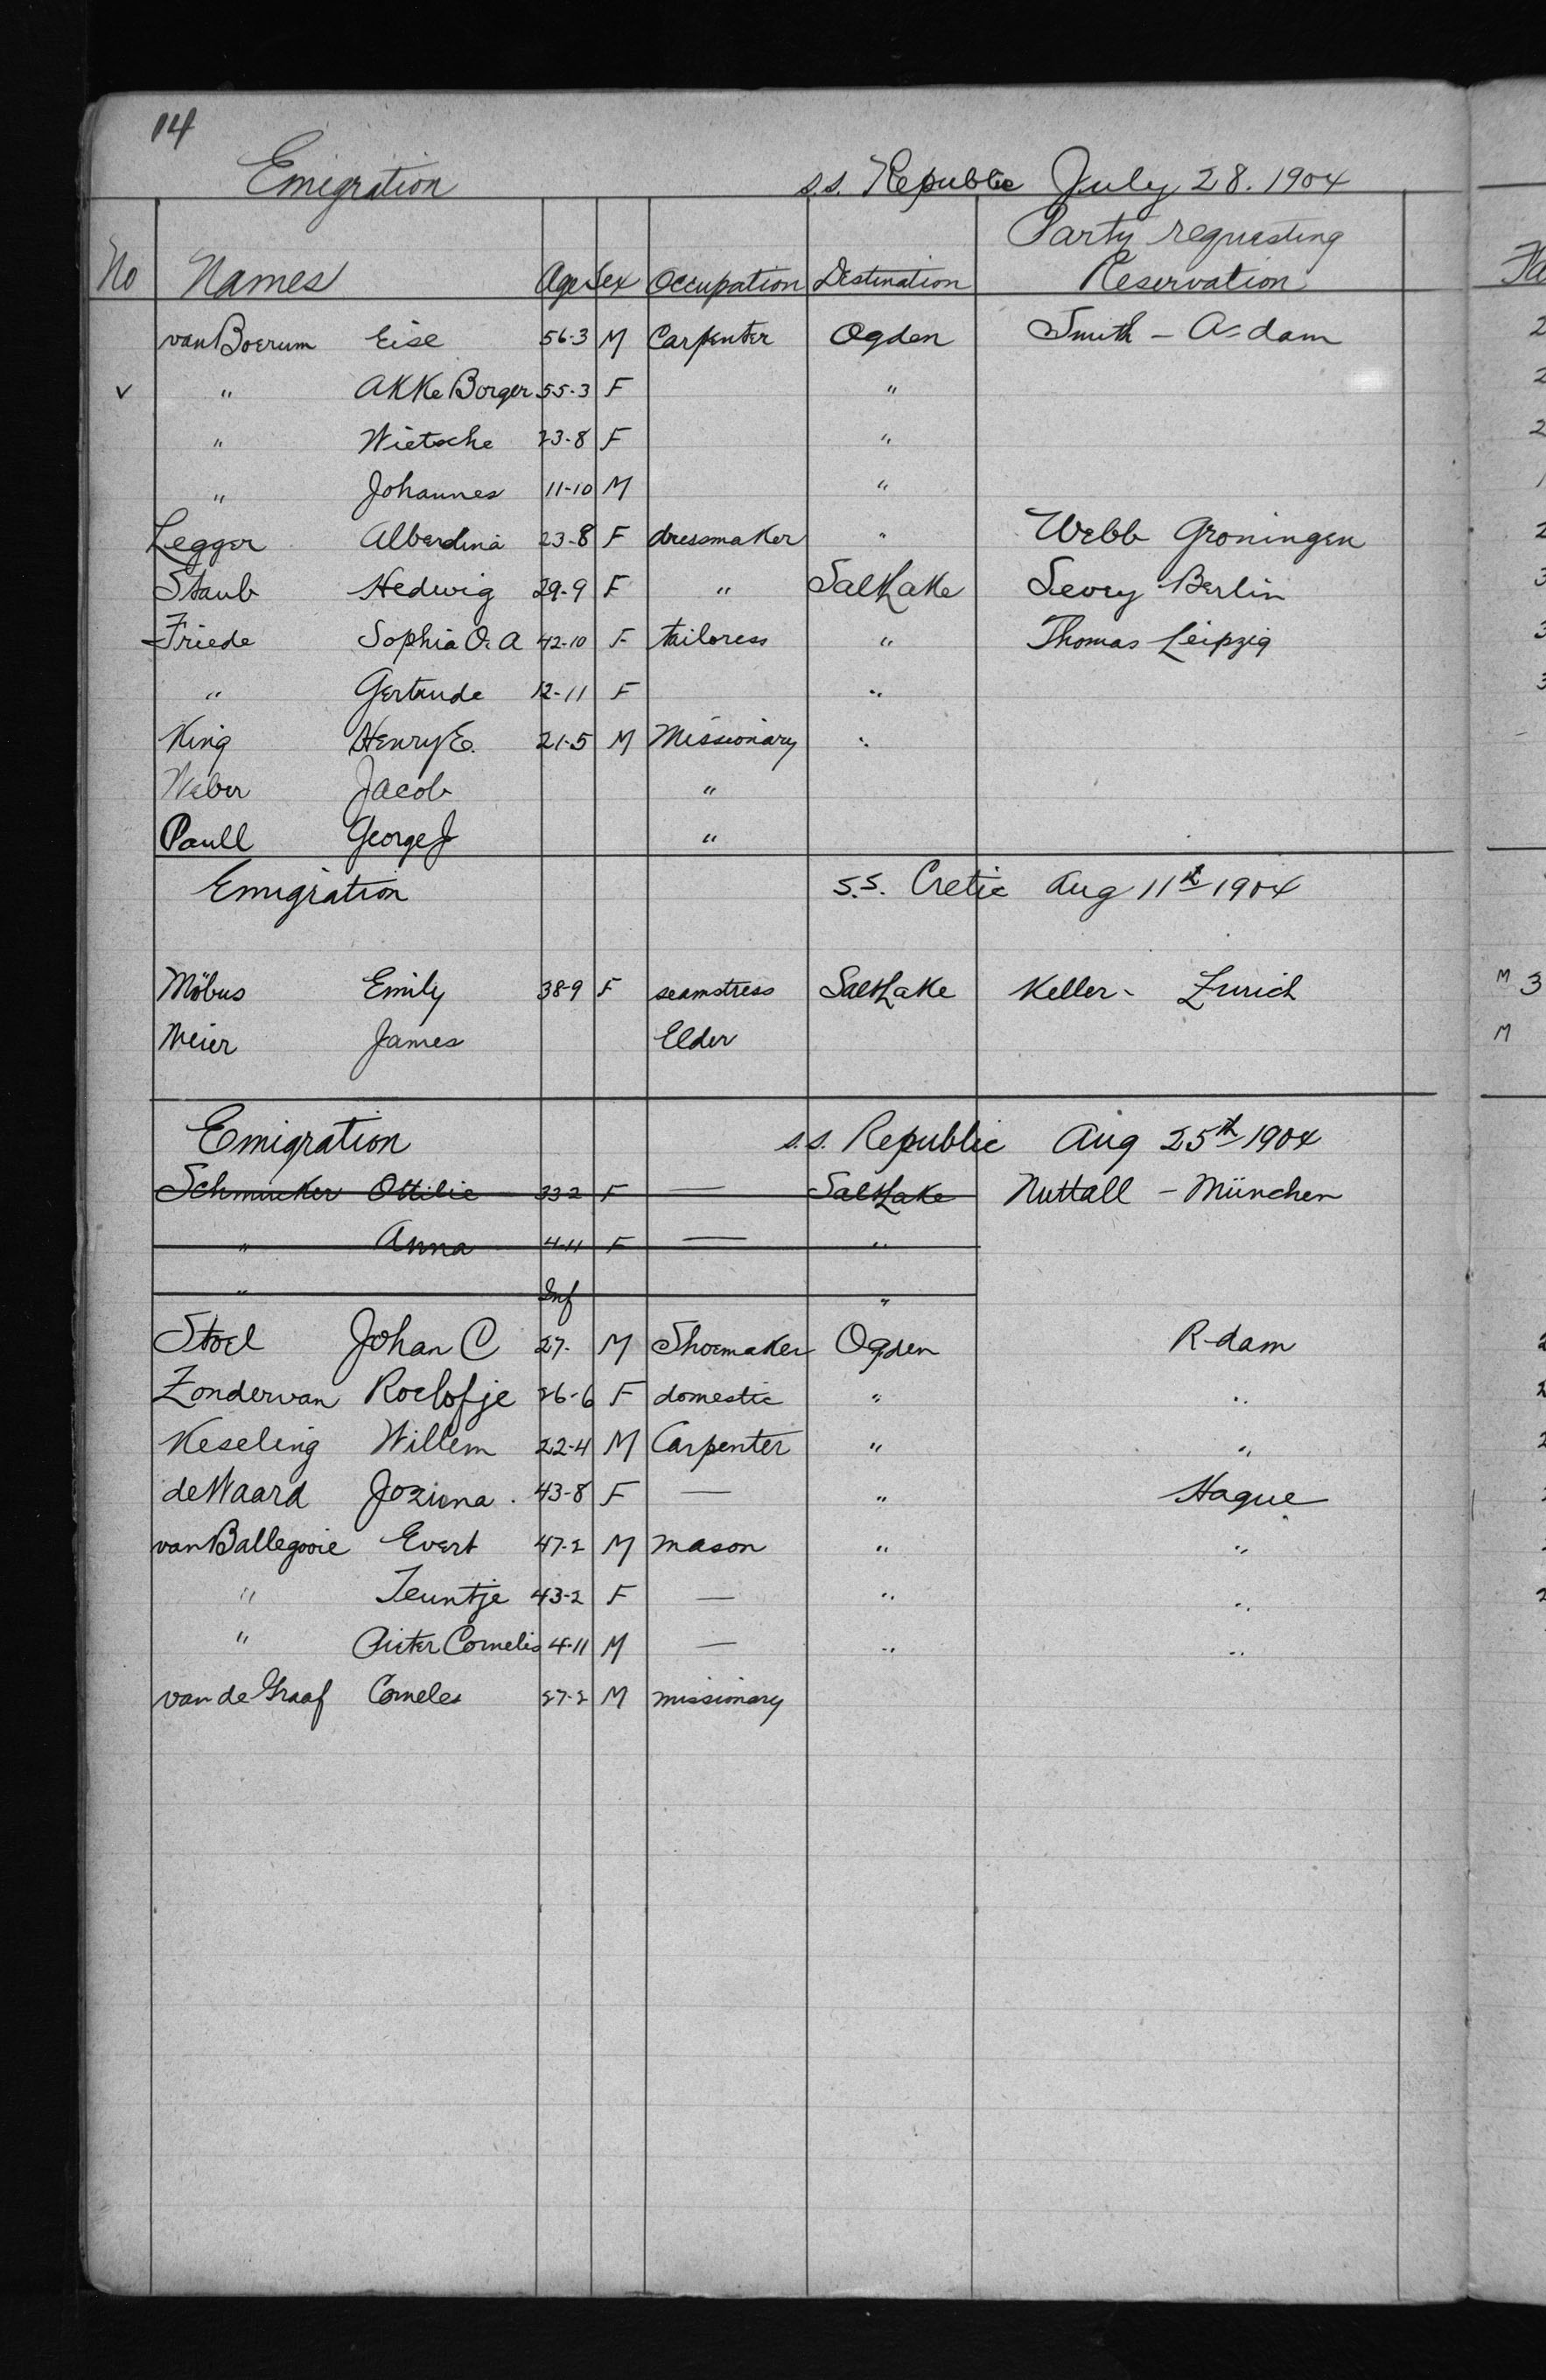 14
Emigration s.s. Republic July 28. 1904
No Names Age Sex Occupation Destination Party requesting Reservation
van Boerum Eise 56-3 M Carpenter Ogden Smith - A-dam
v " Akke Borger 55-3 F "
" Wietsche 23-8 F "
" Johannes 11-10 M "
Legger Alberdina 23-8 F dressmaker " Webb Groningen
Staub Hedwig 29-9 F " Salt Lake Sevry Berlin
Friede Sophia O. A 42-10 F tailoress " Thomas Leipzig
" Gertrude 12-11 F "
King Henry E. 21-5 M Missionary "
Weber Jacob "
Paull George J "
Emigration s.s. Cretic Aug 11th 1904
Möbus Emily 38-9 F seamstress Salt Lake Keller - Zurich
Meier James Elder
Emigration s.s. Republic Aug 25th 1904
Schmucker Ottilie 33-2 F — Salt Lake Nuttall - München
" Anna 4-11 F — "
" Inf "
Stoel Johan C 27- M Shoemaker Ogden R-dam
Zondervan Roelofje 26-6 F domestic " "
Keseling Willem 22-4 M Carpenter " "
de Waard Joziena 43-8 F — " Hague
van Ballegooie Evert 47-2 M mason " "
" Teuntje 43-2 F — " "
" Pieter Cornelis 4-11 M — " "
van de Graaf Corneles 27-2 M missionary